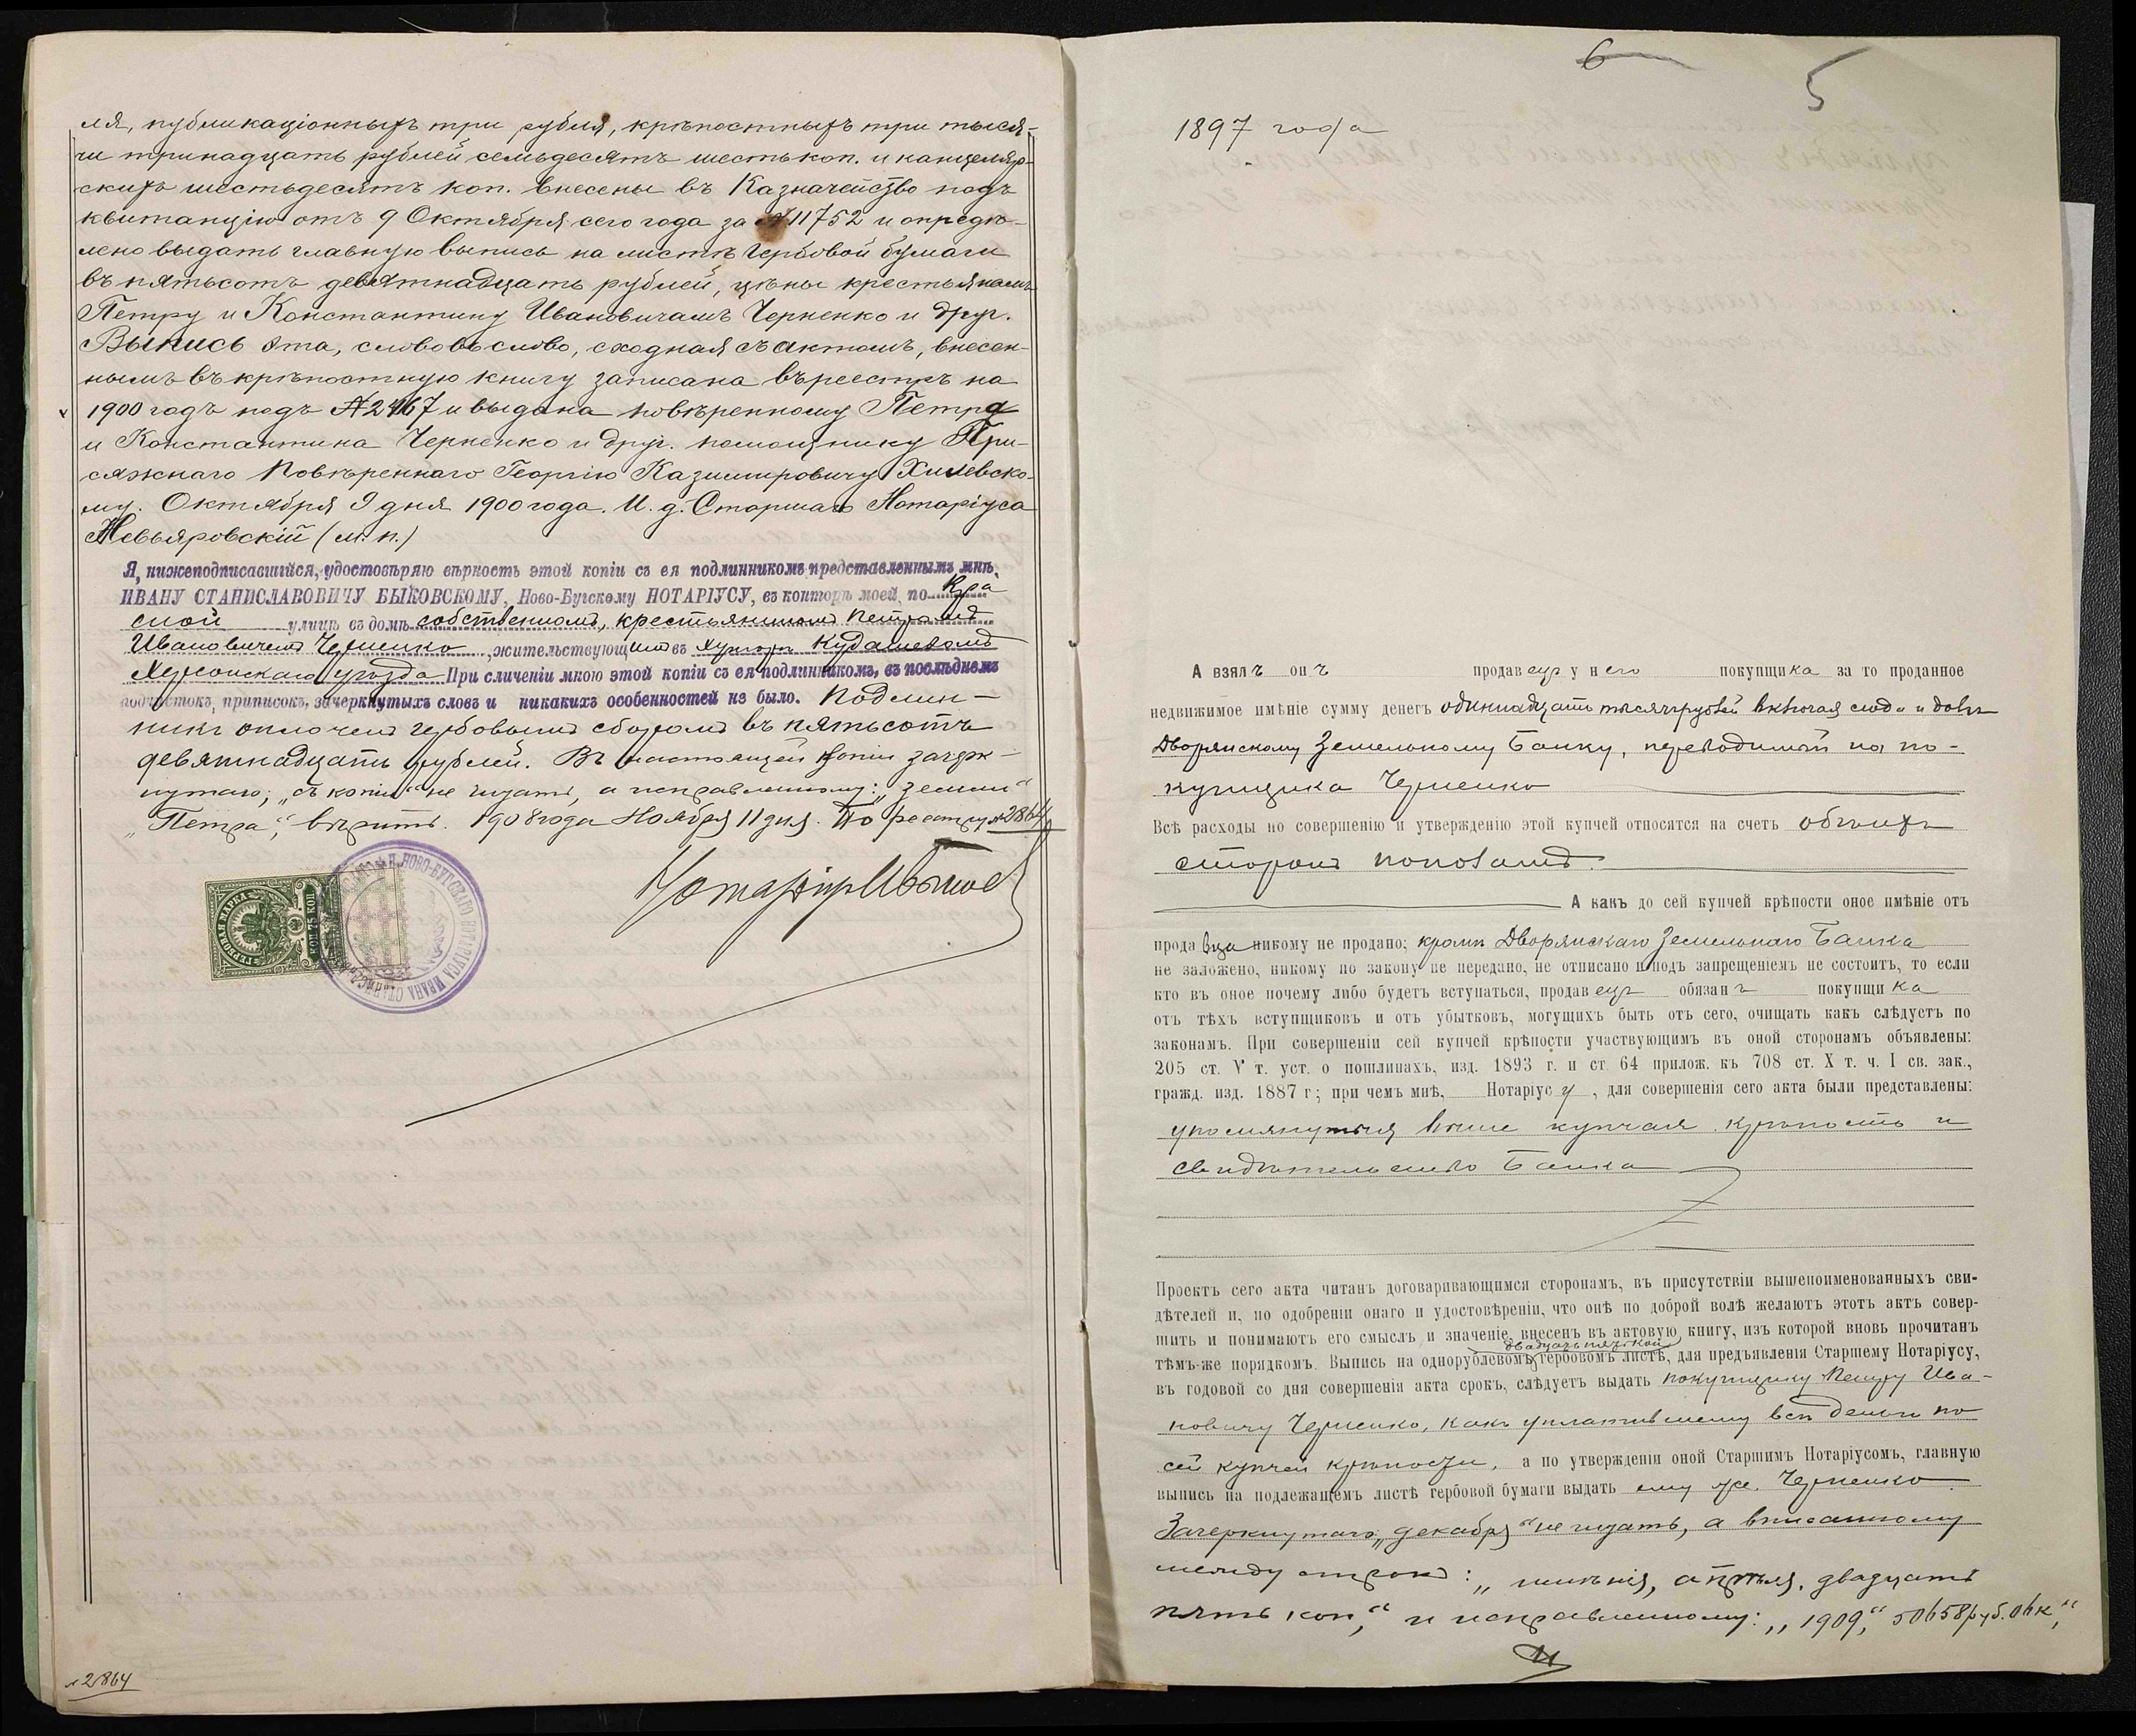 ля, публикаціонныхъ три рубля, крѣпостныхъ три тыся-
чи тринадцать рублей семьдесятъ шесть коп. и канцеляр-
скихъ шестьдесятъ коп. внесены въ Казначейство подъ
квитанцію отъ 9 Октября сего года за № 11752 и опредѣ-
лено выдать главную выпись на листѣ гербовой бумаги
въ пятьсотъ девятнадцать рублей, цѣны крестьянамъ
Петру и Константину Ивановичамъ Черненко и друг.
Выпись эта, слово въ слово, сходная съ актомъ, внесен-
нымъ въ крѣпостную книгу записана въ реестръ на
1900 годъ подъ № 2467 и выдана повѣренному Петра
и Константина Черненко и друг. помощнику При-
сяжнаго Повѣреннаго Георгію Казимировичу Хилевско-
му. Октября 9 дня 1900 года. И. д. Старшаго Нотаріуса
(м. п.)
Я, нижеподписавшійся, удостовѣряю вѣрность этой копіи съ ея подлинникомъ представленнымъ мнѣ,
ИВАНУ СТАНИСЛАВОВИЧУ БЫКОВСКОМУ, Ново-Бугскому НОТАРІУСУ, въ конторѣ моей, по Кра
сной улицѣ въ домѣ собственномъ, крестьяниномъ Петромъ
Ивановичемъ Черненко, жительствующимъ въ хуторѣ Кудашевомъ
Херсонскаго уѣзда При сличеніи мною этой копіи съ ея подлинникомъ, въ послѣднемъ
подчистокъ, приписокъ, зачеркнутыхъ словъ и никакихъ особенностей не было. Подлин-
никъ оплоченъ гербовымъ сборомъ въ пятьсотъ
девятнадцать рублей. Въ настоящей копіи зачерк-
нутаго; „съ копіи" не читать, а исправленному: „земли"
„Петра", вѣрить. 1908 года Ноября 11 дня. По реестру № 2864
Нотаріусъ
ГЕРБОВАЯ МАРКА
75 КОП
Н.-НОВО-БУГСКАГО НОТАРІУСА ИВАНА СТАНИСЛАВ
№ 2864
6
5
1897 года
А взялъ онъ продавецъ у него покупщика за то проданное
недвижимое имѣніе сумму денегъ одиннадцать тысячъ рублей включая сюда и долгъ
Дворянскому Земельному Банку, переводимый на по-
купщика Черненко
Всѣ расходы по совершенію и утвержденію этой купчей относятся на счетъ обѣихъ
сторонъ пополамъ.
А какъ до сей купчей крѣпости оное имѣніе отъ
продавца никому не продано; кромѣ Дворянскаго Земельнаго Банка
не заложено, никому по закону не передано, не отписано и подъ запрещеніемъ не состоитъ, то если
кто въ оное почему либо будетъ вступаться, продавецъ обязанъ покупщика
отъ тѣхъ вступщиковъ и отъ убытковъ, могущихъ быть отъ сего, очищать какъ слѣдуетъ по
законамъ. При совершеніи сей купчей крѣпости участвующимъ въ оной сторонамъ объявлены:
205 ст. V т. уст. о пошлинахъ, изд. 1893 г. и ст. 64 прилож. къ 708 ст. X т. ч. I св. зак.,
гражд. изд. 1887 г; при чемъ мнѣ, Нотаріусу, для совершенія сего акта были представлены:
упомянутыя выше купчая крѣпость и
свидѣтельство Банка
Проектъ сего акта читанъ договаривающимся сторонамъ, въ присутствіи вышепоименованныхъ сви-
дѣтелей и, по одобреніи онаго и удостовѣреніи, что онѣ по доброй волѣ желаютъ этотъ актъ совер-
шить и понимаютъ его смыслъ и значеніе, внесенъ въ актовую книгу, изъ которой вновь прочитанъ
двадцать пять коп
тѣмъ-же порядкомъ. Выпись на однорублевомъ гербовомъ листѣ, для предъявленія Старшему Нотаріусу,
въ годовой со дня совершенія акта срокъ, слѣдуетъ выдать покупщику Петру Ива-
новичу Черненко, какъ уплатившему всѣ деньги по
сей купчей крѣпости, а по утвержденіи оной Старшимъ Нотаріусомъ, главную
выпись на подлежащемъ листѣ гербовой бумаги выдать ему же Черненко.
Зачеркнутаго: „декабря" не читать, а вписанному
между строкъ: „имѣнія, апрѣля, двадцать
пять коп," и исправленному: „1909," 50658 руб. 06 к,"